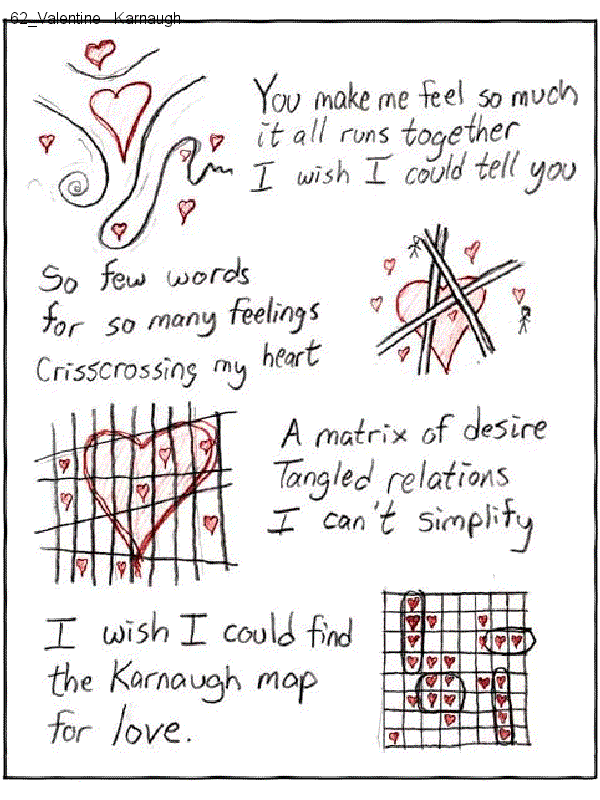 62_Valentine - Karnaugh
You make me feel so much
it all runs together
I wish I could tell you
So few words
for so many feelings
Crisscrossing my heart
A matrix of desire
Tangled relations
I can't simplify
I wish I could find
the Karnaugh map
for love.